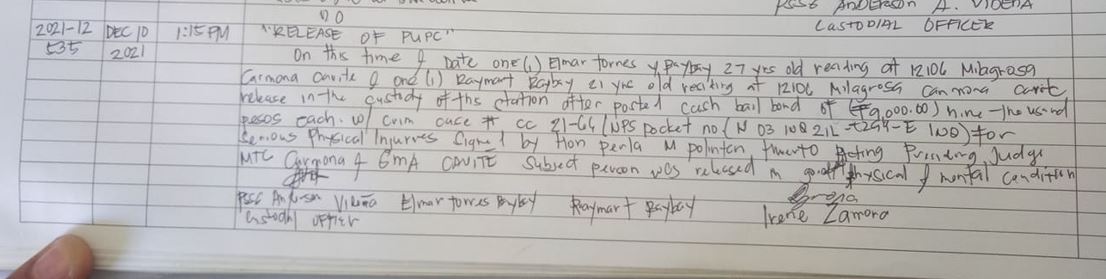 PSSG ANDERSON A. VIDEÑA
CUSTODIAL OFFICER
DO
2021-12 DEC 10 1:15 PM "RELEASE OF PUPC"
535 2021 On this time & Date one (1) Elmar torres y Paybay 27 yrs old reading at 12106 Milagrosa
Carmona Cavite & one (1) Raymart Baybay 21 yrs old reciting at 12106 Milagrosa Carmona Cavite
release in the custody of this station after posted cash bail bond of (₱9,000.00) nine thousand
pesos each. w/ crim case # CC 21-64 (NPS pocket no (N 03 INQ 21L -E INQ) for
Serious Physical Injuries Signed by Hon perla M Acting Presiding Judge
MTC Carmona & GMA CAVITE Subject person was released in good physical & mental condition
PSSG Anderson Videña Elmar torres Baybay Raymart Baybay Irene Zamora
Custodial officer